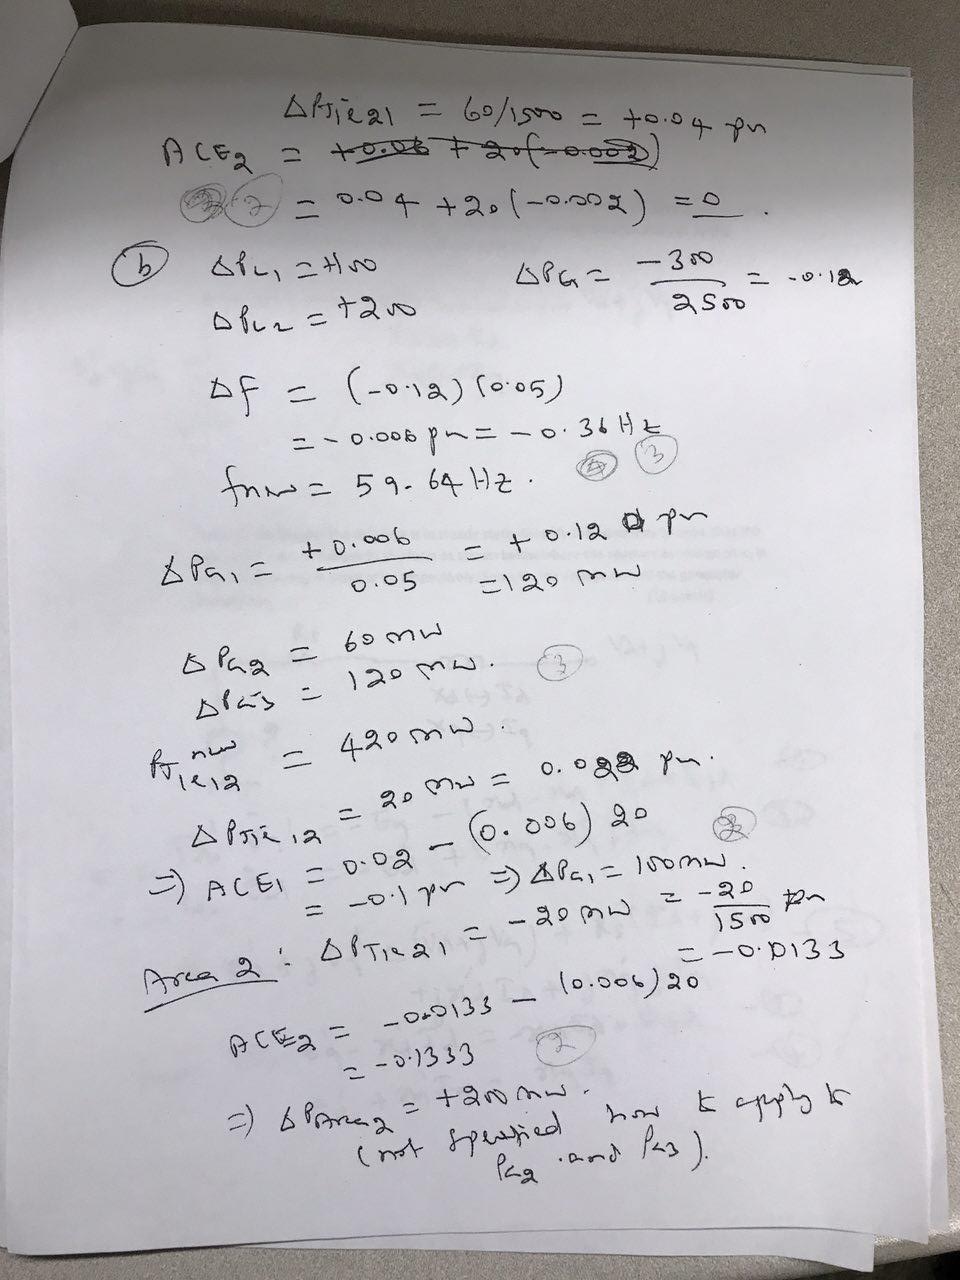 ΔPTie21 = 60/1500 = +0.04 pu
ACE2 = +0.06 + 20(-0.002)
2 = 0.04 + 20(-0.002) = 0.
(b) ΔPL1 = +100 ΔPG = -300/2500 = -0.12
ΔPL2 = +200
Δf = (-0.12)(0.05)
= -0.006 pu = -0.36 Hz
3
fnew = 59.64 Hz.
ΔPG1 = +0.006/0.05 = +0.12 pu
= 120 MW
ΔPG2 = 60 MW
ΔPG3 = 120 MW. 3
PTie12 new = 420 MW.
ΔPTie12 = 20 MW = 0.02 pu.
⇒ ACE1 = 0.02 - (0.006) 20 2
= -0.1 pu ⇒ ΔPG1 = 100 MW.
Area 2: ΔPTie21 = -20 MW = -20/1500 pu
= -0.0133
ACE2 = -0.0133 - (0.006) 20
= -0.1333 2
⇒ ΔPArea2 = +200 MW.
(not specified how to apply to
PG2 and PG3).